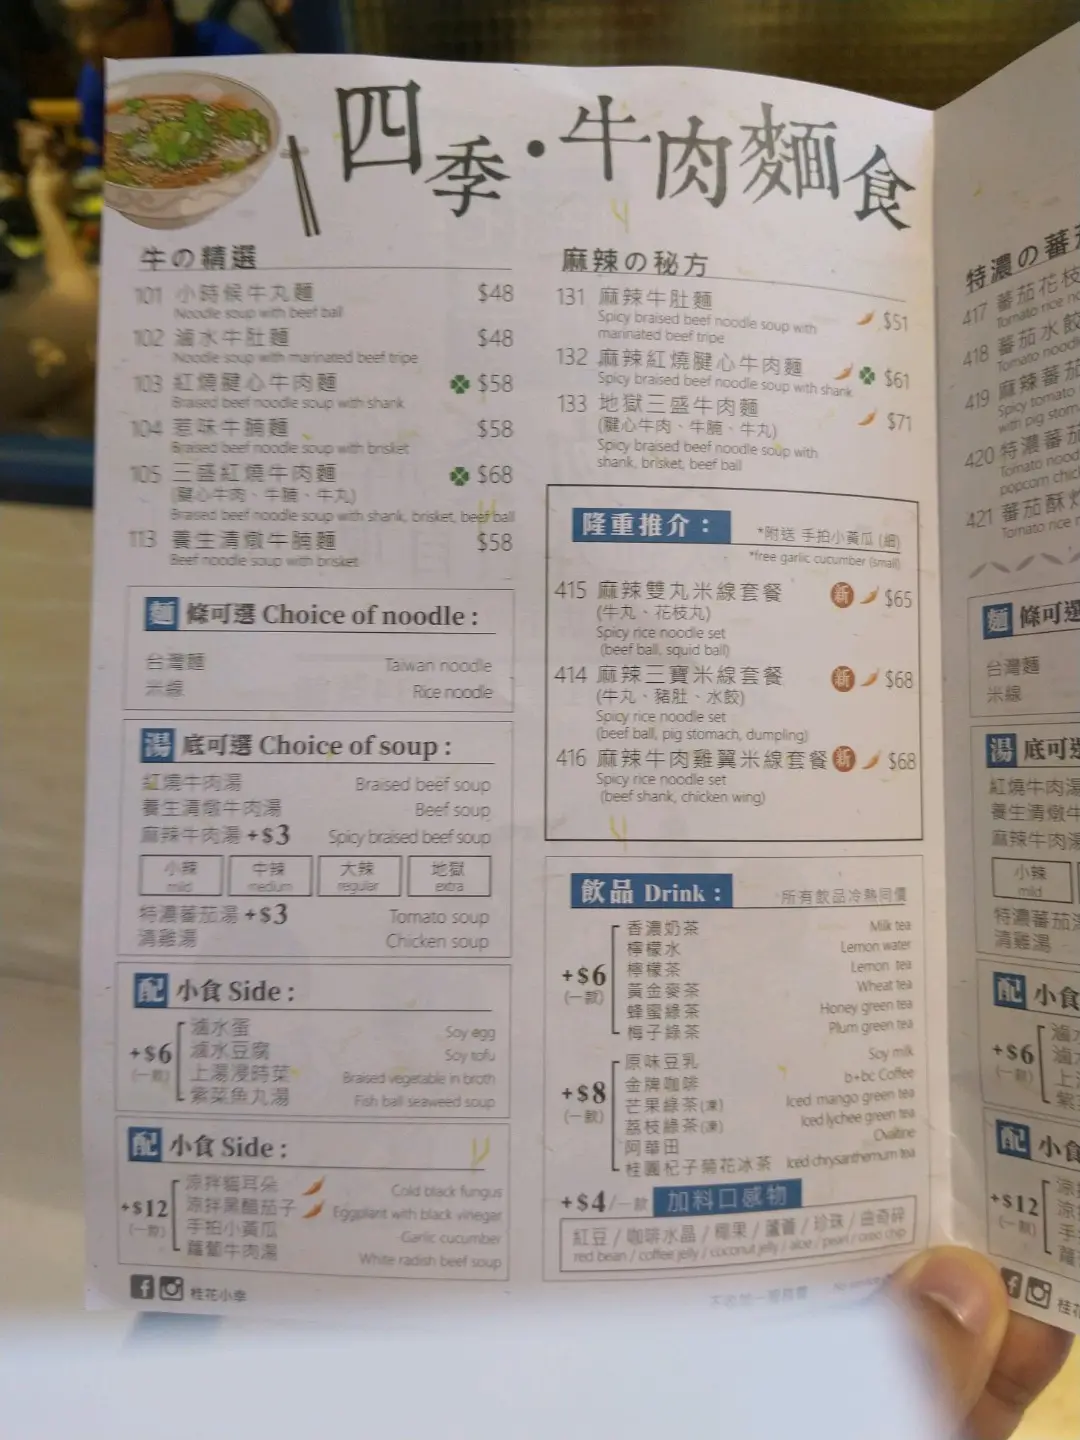 四季·牛肉麵食
牛の精選
101 小時候牛丸麵 $48
Noodle soup with beef ball
102 滷水牛肚麵 $48
Noodle soup with marinated beef tripe
103 紅燒腱心牛肉麵 $58
Braised beef noodle soup with shank
104 惹味牛腩麵 $58
Braised beef noodle soup with brisket
105 三盛紅燒牛肉麵 $68
(腱心牛肉、牛腩、牛丸)
Braised beef noodle soup with shank, brisket, beef ball
113 養生清燉牛腩麵 $58
Beef noodle soup with brisket
麵條可選 Choice of noodle :
台灣麵 Taiwan noodle
米線 Rice noodle
湯底可選 Choice of soup :
紅燒牛肉湯 Braised beef soup
養生清燉牛肉湯 Beef soup
麻辣牛肉湯 +$3 Spicy braised beef soup
小辣 中辣 大辣 地獄
mild medium regular extra
特濃蕃茄湯 +$3 Tomato soup
清雞湯 Chicken soup
配小食 Side :
+$6
(一款)
滷水蛋 Soy egg
滷水豆腐 Soy tofu
上湯浸時菜 Braised vegetable in broth
紫菜魚丸湯 Fish ball seaweed soup
配小食 Side :
+$12
(一款)
涼拌貓耳朵 Cold black fungus
涼拌黑醋茄子 Eggplant with black vinegar
手拍小黃瓜 Garlic cucumber
蘿蔔牛肉湯 White radish beef soup
桂花小幸
麻辣の秘方
131 麻辣牛肚麵 $51
Spicy braised beef noodle soup with
marinated beef tripe
132 麻辣紅燒腱心牛肉麵 $61
Spicy braised beef noodle soup with shank
133 地獄三盛牛肉麵 $71
(腱心牛肉、牛腩、牛丸)
Spicy braised beef noodle soup with
shank, brisket, beef ball
隆重推介：
*附送 手拍小黃瓜 (細)
*free garlic cucumber (small)
415 麻辣雙丸米線套餐 新 $65
(牛丸、花枝丸)
Spicy rice noodle set
(beef ball, squid ball)
414 麻辣三寶米線套餐 新 $68
(牛丸、豬肚、水餃)
Spicy rice noodle set
(beef ball, pig stomach, dumpling)
416 麻辣牛肉雞翼米線套餐 新 $68
Spicy rice noodle set
(beef shank, chicken wing)
飲品 Drink :
*所有飲品冷熱同價
+$6
(一款)
香濃奶茶 Milk tea
檸檬水 Lemon water
檸檬茶 Lemon tea
黃金麥茶 Wheat tea
蜂蜜綠茶 Honey green tea
梅子綠茶 Plum green tea
+$8
(一款)
原味豆乳 Soy milk
金牌咖啡 b+bc Coffee
芒果綠茶(凍) Iced mango green tea
荔枝綠茶(凍) Iced lychee green tea
阿華田 Ovaltine
桂圓杞子菊花冰茶 Iced chrysanthemum tea
+$4/一款 加料口感物
紅豆 / 咖啡水晶 / 椰果 / 蘆薈 / 珍珠 / 曲奇碎
red bean / coffee jelly / coconut jelly / aloe / pearl / oreo chip
特濃の蕃
417 蕃茄花枝
Tomato rice
418 蕃茄水餃
Tomato
419 麻辣蕃茄
Spicy tomato
with pig
420 特濃蕃茄
Tomato
popcorn
421 蕃茄酥
Tomato rice
麵條可選
台灣麵
米線
湯底可
紅燒牛肉湯
養生清燉牛
麻辣牛肉
小辣
mild
特濃蕃茄
清雞湯
配小食
+$6
(一款)
配小食
+$12
(一款)